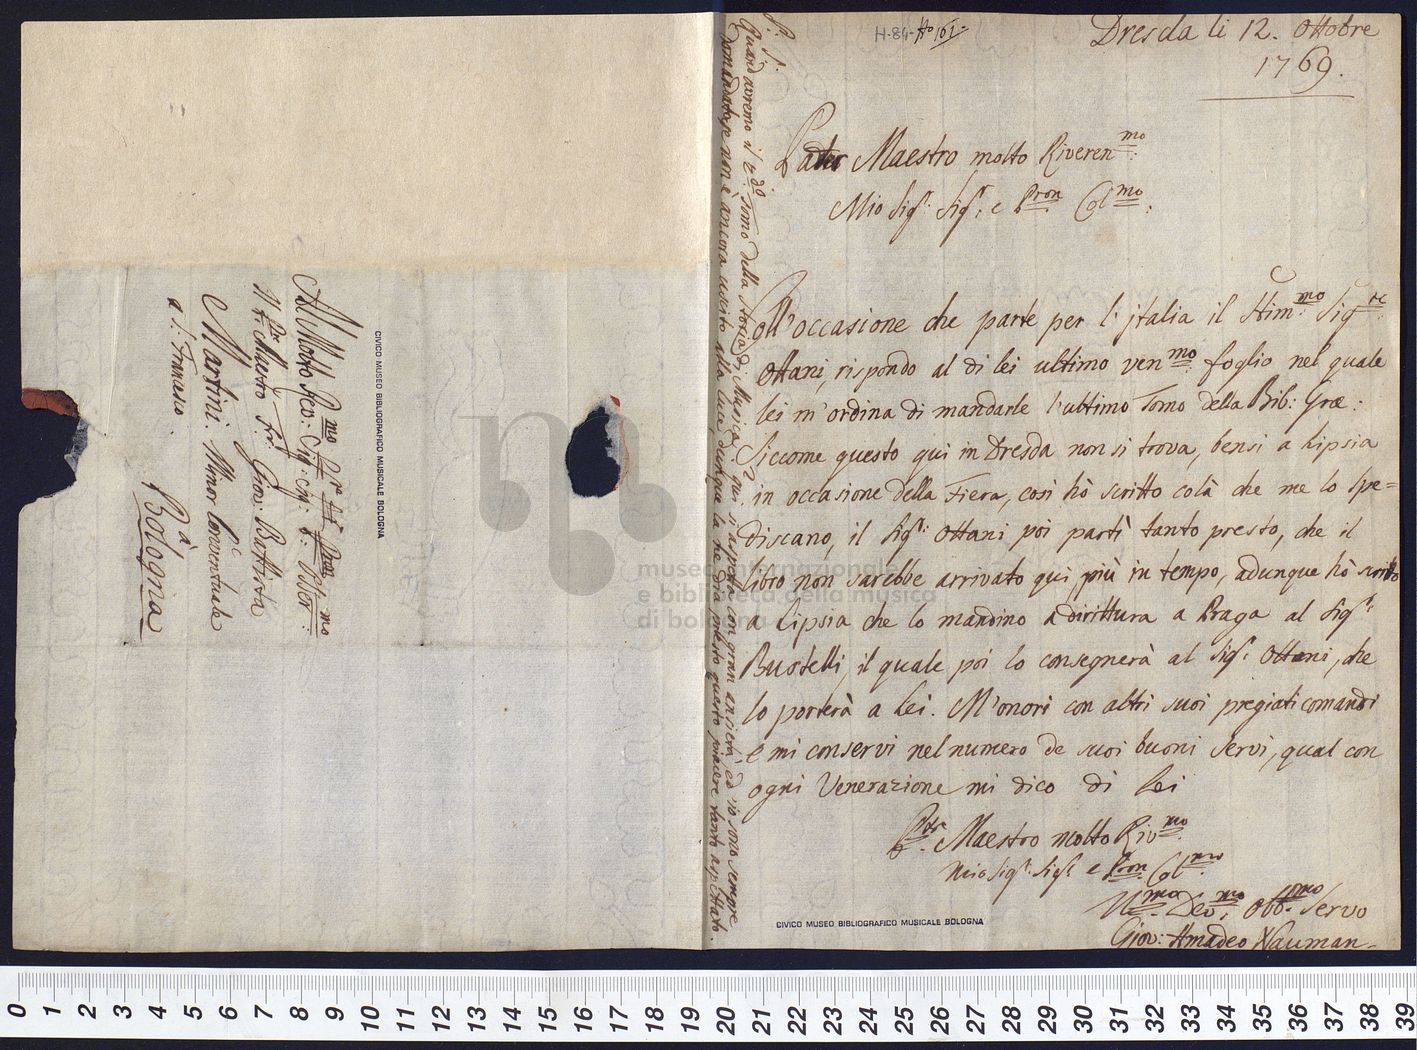 H-84-Ao 161-
Dresda li 12. Ottobre
1769.
Pater Maestro molto Riveren^mo:
Mio Sig^r: Sig^r: e Pron Col^mo:
Coll'occasione che parte per l'jtalia il Stim^mo: Sig^re:
Ottani, rispondo al di lei ultimo ven^mo: foglio nel quale
lei m'ordina di mandarle l'ultimo Tomo della Bib: Græ:
Siccome questo qui in Dresda non si trova, bensi a Lipsia
in occasione della Fiera, così hò scritto colà che me lo spe=
discano, il Sig^r: Ottani poi partì tanto presto, che il
libro non sarebbe arrivato qui più in tempo, adunque hò scritto
a Lipsia che lo mandino a dirittura a Praga al Sig^r:
Bustelli, il quale poi lo consegnerà al Sig^r: Ottani, che
lo porterà a Lei. M'onori con altri suoi pregiati comandi
e mi conservi nel numero de suoi buoni Servi, qual con
ogni Venerazione mi dico di Lei
Maestro molto Riv^mo
mio Sig^r: Sig^r: e Pron Col^mo
U^mo: Dev^mo: Obb^mo: Servo
Giov: Amadeo Nauman
P. S.
Quand avremo il 2^do: tomo della storia di Musica? qui si aspetta con gran ansietà, ed io sono sempre
domandato, se non è ancora uscito alla luce, dunque la
Al Molto Rev:
Maestro Fr: Giov: Battista
Martini. Minor Conventuale
a S: Francesco.
à
Bologna
CIVICO MUSEO BIBLIOGRAFICO MUSICALE BOLOGNA
CIVICO MUSEO BIBLIOGRAFICO MUSICALE BOLOGNA
museo internazionale
e biblioteca della musica
di bologna
0 1 2 3 4 5 6 7 8 9 10 11 12 13 14 15 16 17 18 19 20 21 22 23 24 25 26 27 28 29 30 31 32 33 34 35 36 37 38 39